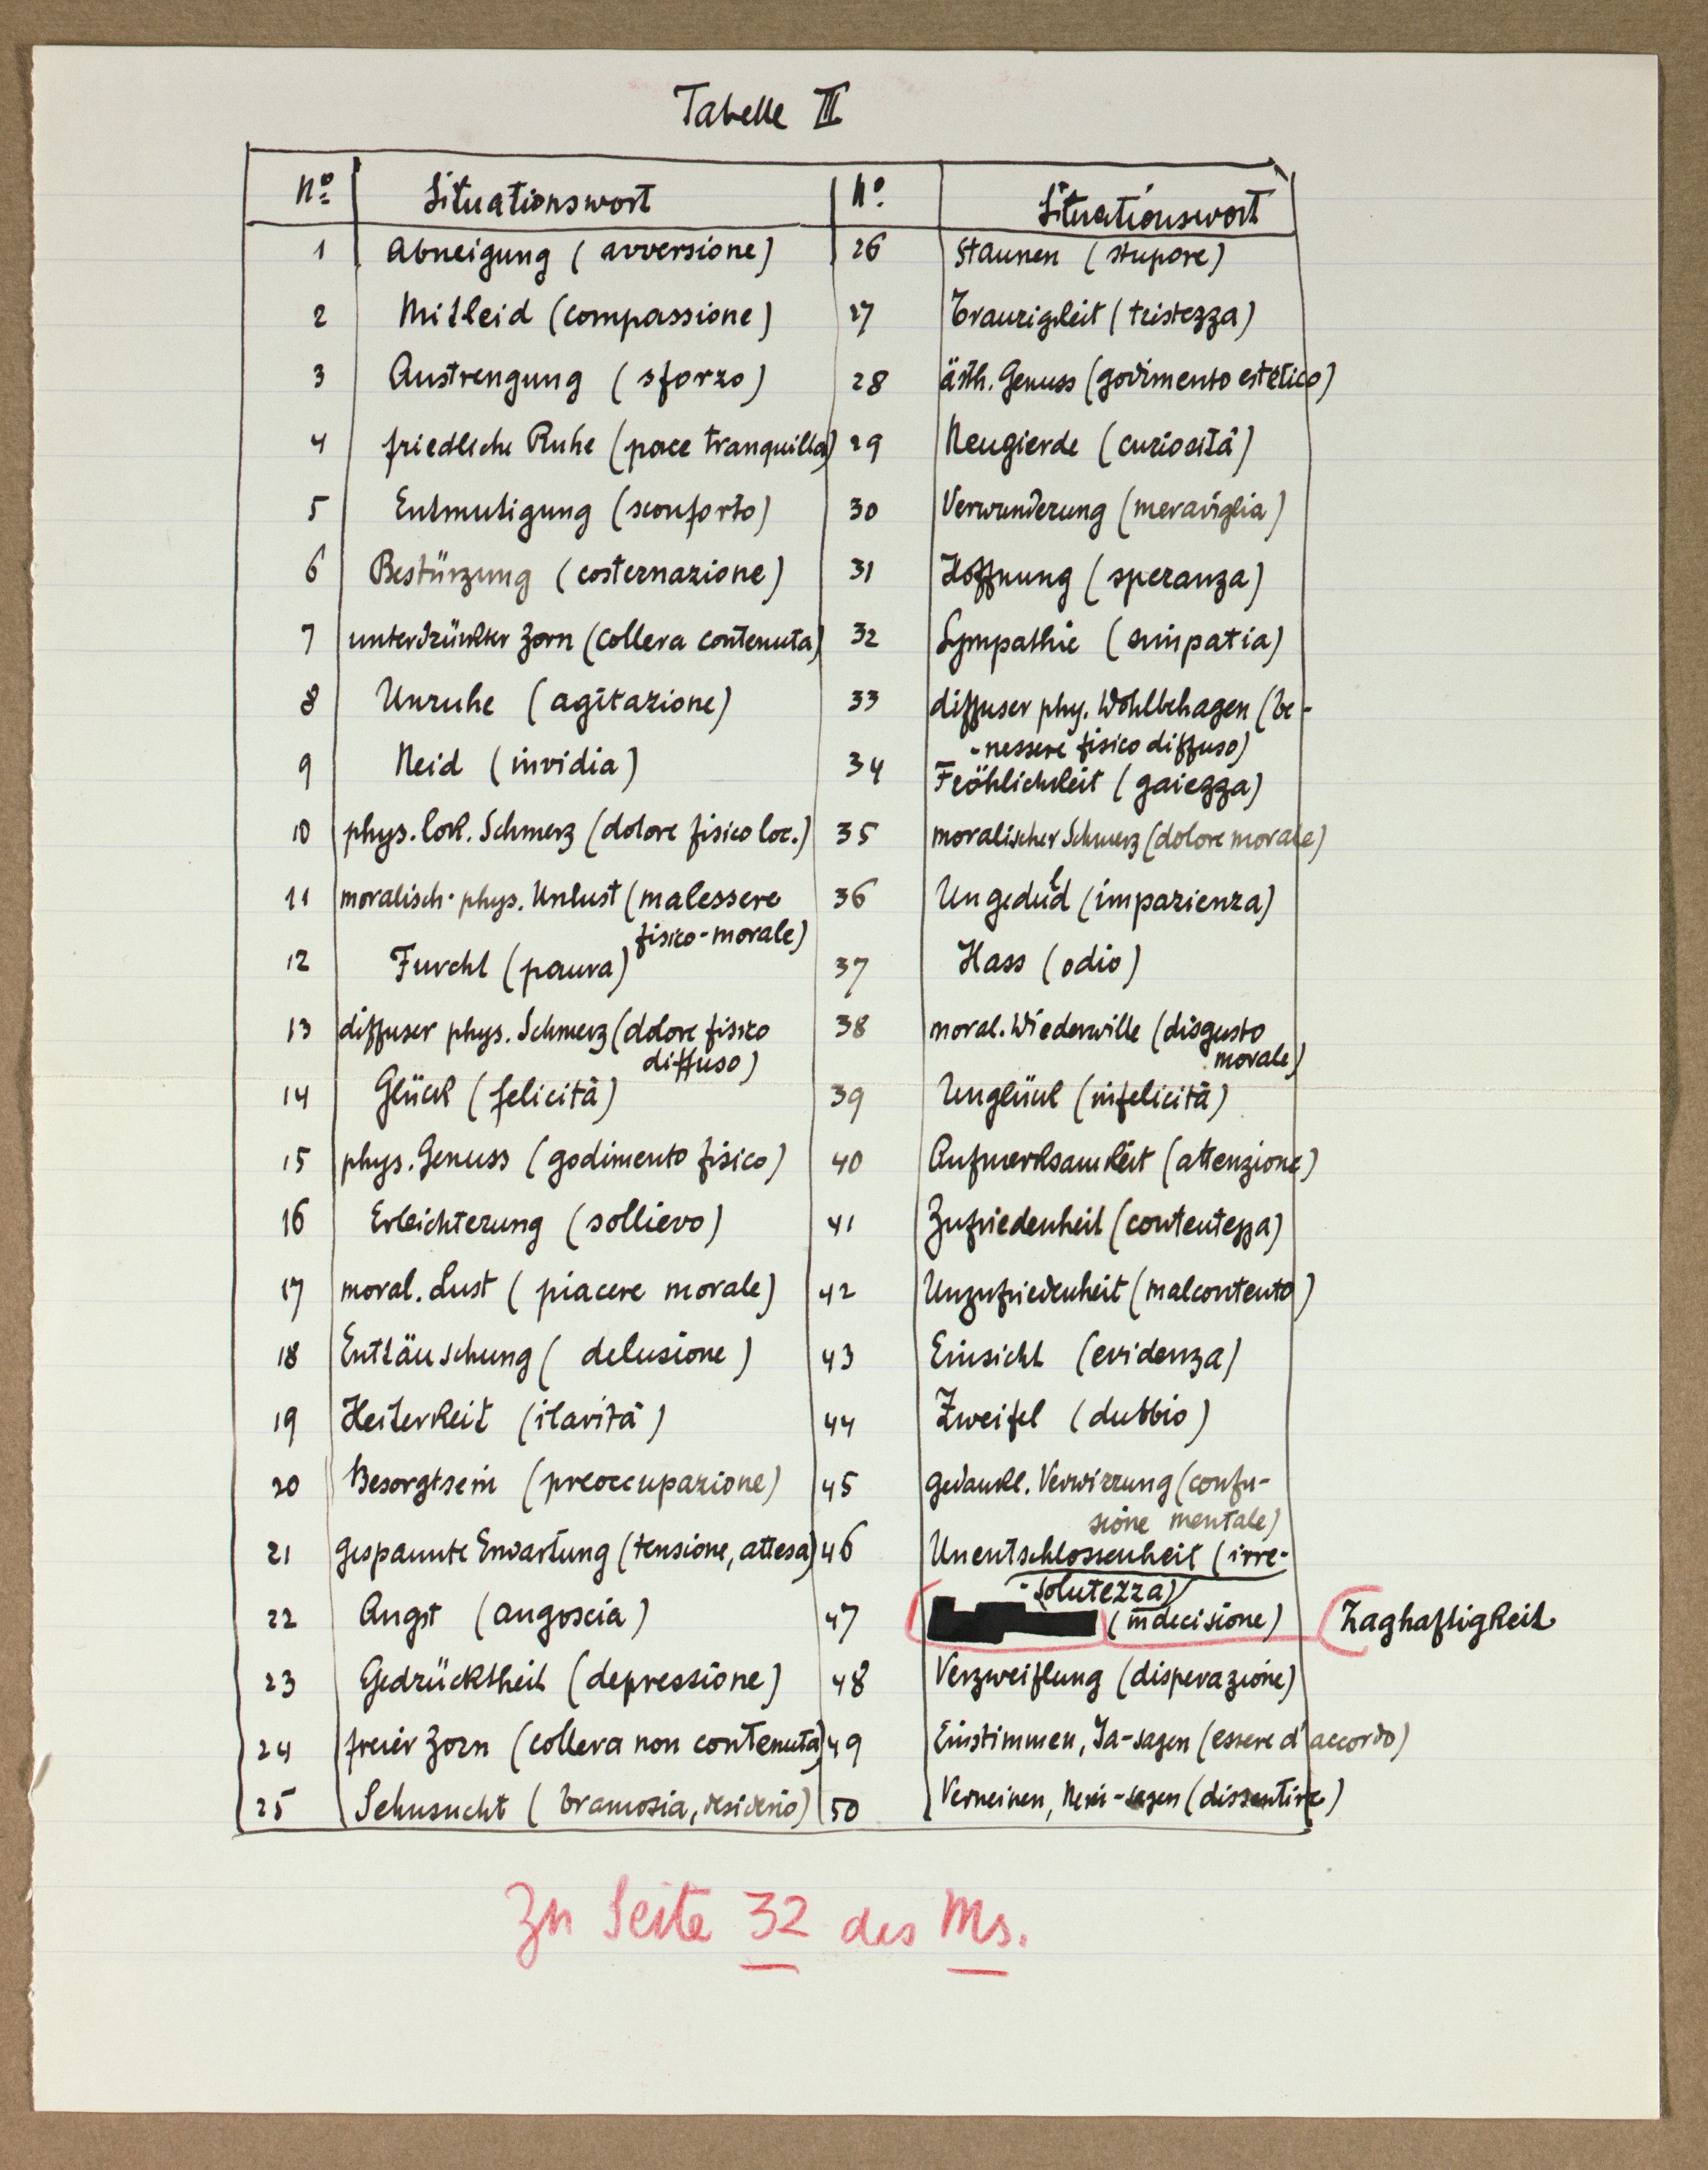 Tabelle III
Nº Situationswort Nº Situationswort
1 Abneigung (avversione) 26 Staunen (stupore)
2 Mitleid (compassione) 27 Traurigkeit (tristezza)
3 Anstrengung (sforzo) 28 ästh. Genuss (godimento estetico)
4 friedliche Ruhe (pace tranquilla) 29 Neugierde (curiosità)
5 Entmutigung (sconforto) 30 Verwunderung (meraviglia)
6 Bestürzung (costernazione) 31 Hoffnung (speranza)
7 unterdrückter Zorn (collera contenuta) 32 Sympathie (simpatia)
8 Unruhe (agitazione) 33 diffuser phy. Wohlbehagen (be-
-nessere fisico diffuso)
9 Neid (invidia) 34 Fröhlichkeit (gaiezza)
10 phys. lok. Schmerz (dolore fisico loc.) 35 moralischer Schmerz (dolore morale)
11 moralisch-phys. Unlust (malessere 36 Ungeduld (impazienza)
fisico-morale)
12 Furcht (paura) 37 Hass (odio)
13 diffuser phys. Schmerz (dolore fisico 38 moral. Wiederwille (disgusto
diffuso) morale)
14 Glück (felicità) 39 Unglück (infelicità)
15 phys. Genuss (godimento fisico) 40 Aufmerksamkeit (attenzione)
16 Erleichterung (sollievo) 41 Zufriedenheit (contentezza)
17 moral. Lust (piacere morale) 42 Unzufriedenheit (malcontento)
18 Enttäuschung (delusione) 43 Einsicht (evidenza)
19 Heiterkeit (ilarità) 44 Zweifel (dubbio)
20 Besorgtsein (preoccupazione) 45 gedankl. Verwirrung (confu-
sione mentale)
21 gespannte Erwartung (tensione, attesa) 46 Unentschlossenheit (irre-
-solutezza)
22 Angst (angoscia) 47 (indecisione) (Zaghaftigkeit
23 Gedrücktheit (depressione) 48 Verzweiflung (disperazione)
24 freier Zorn (collera non contenuta) 49 Einstimmen, Ja-sagen (essere d'accordo)
25 Sehnsucht (bramosia, desiderio) 50 Verneinen, Nein-sagen (dissentire)
Zu Seite 32 des Ms.